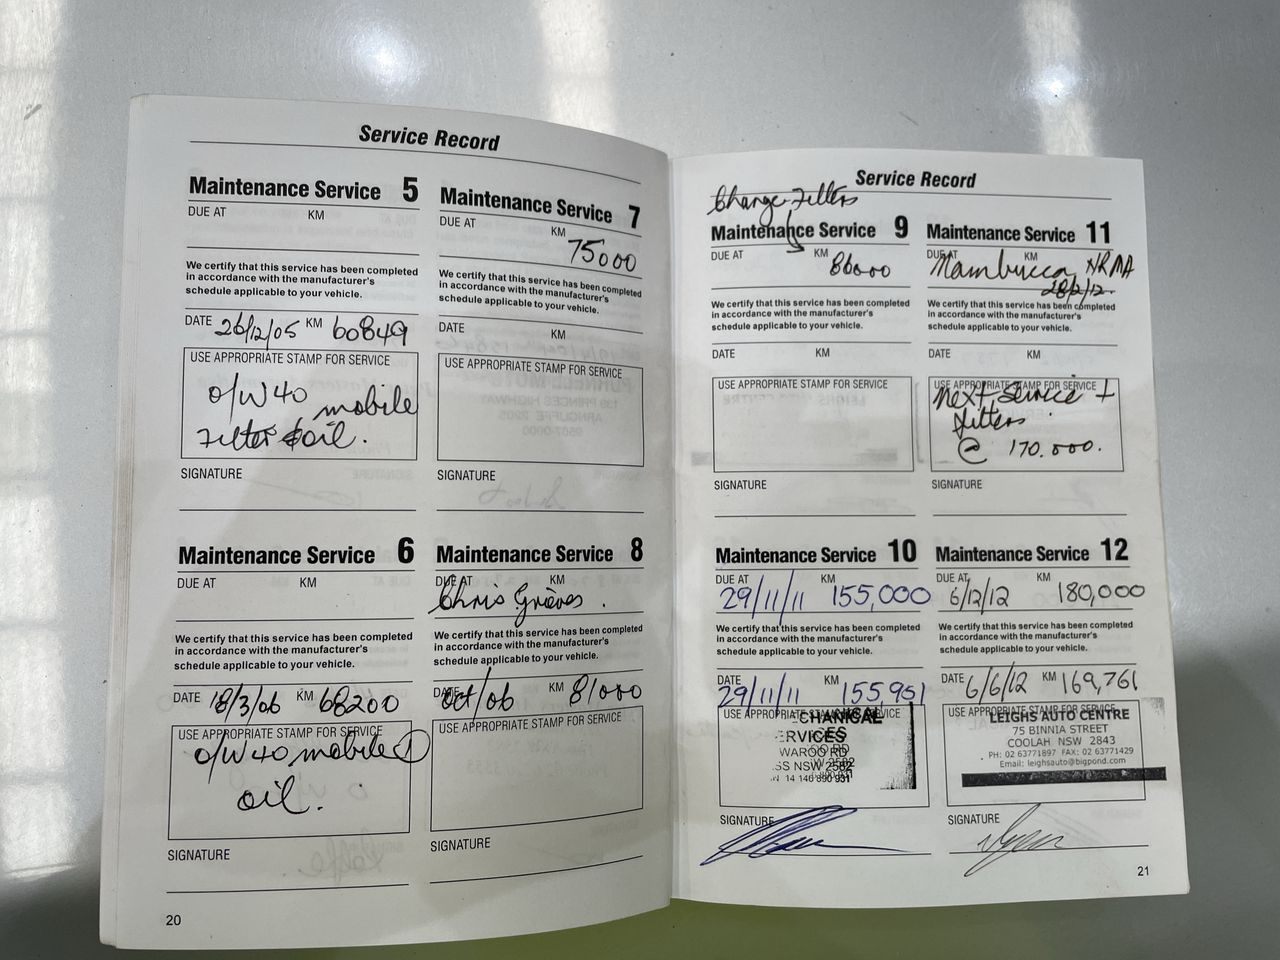 Service Record
Maintenance Service 5
DUE AT KM
We certify that this service has been completed
in accordance with the manufacturer's
schedule applicable to your vehicle.
DATE 26/12/05 KM 60849
USE APPROPRIATE STAMP FOR SERVICE
O/W40 mobile
Filter & oil.
SIGNATURE
Maintenance Service 6
DUE AT KM
We certify that this service has been completed
in accordance with the manufacturer's
schedule applicable to your vehicle.
DATE 18/3/06 KM 68200
USE APPROPRIATE STAMP FOR SERVICE
O/W40 mobile 1
oil.
SIGNATURE
20
Maintenance Service 7
DUE AT KM
75000
We certify that this service has been completed
in accordance with the manufacturer's
schedule applicable to your vehicle.
DATE KM
USE APPROPRIATE STAMP FOR SERVICE
SIGNATURE
Maintenance Service 8
DUE AT KM
Chris Grieves.
We certify that this service has been completed
in accordance with the manufacturer's
schedule applicable to your vehicle.
DATE Oct/06 KM 81000
USE APPROPRIATE STAMP FOR SERVICE
SIGNATURE
Service Record
Change Filters
Maintenance Service 9
DUE AT KM
86000
We certify that this service has been completed
in accordance with the manufacturer's
schedule applicable to your vehicle.
DATE KM
USE APPROPRIATE STAMP FOR SERVICE
SIGNATURE
Maintenance Service 10
DUE AT KM
29/11/11 155,000
We certify that this service has been completed
in accordance with the manufacturer's
schedule applicable to your vehicle.
DATE KM
29/11/11 155951
USE APPROPRIATE STAMP FOR SERVICE
CHANICAL
ERVICES
WAROO RD
SS NSW 2582
14 146 890 931
SIGNATURE
Maintenance Service 11
DUE AT KM
Nambucca NRMA
28/2/12.
We certify that this service has been completed
in accordance with the manufacturer's
schedule applicable to your vehicle.
DATE KM
USE APPROPRIATE STAMP FOR SERVICE
Next Service +
Filters
@ 170.000.
SIGNATURE
Maintenance Service 12
DUE AT KM
6/12/12 180,000
We certify that this service has been completed
in accordance with the manufacturer's
schedule applicable to your vehicle.
DATE 6/6/12 KM 169,761
USE APPROPRIATE STAMP FOR SERVICE
LEIGHS AUTO CENTRE
75 BINNIA STREET
COOLAH NSW 2843
PH: 02 63771897 FAX: 02 63771429
Email: leighsauto@bigpond.com
SIGNATURE
21